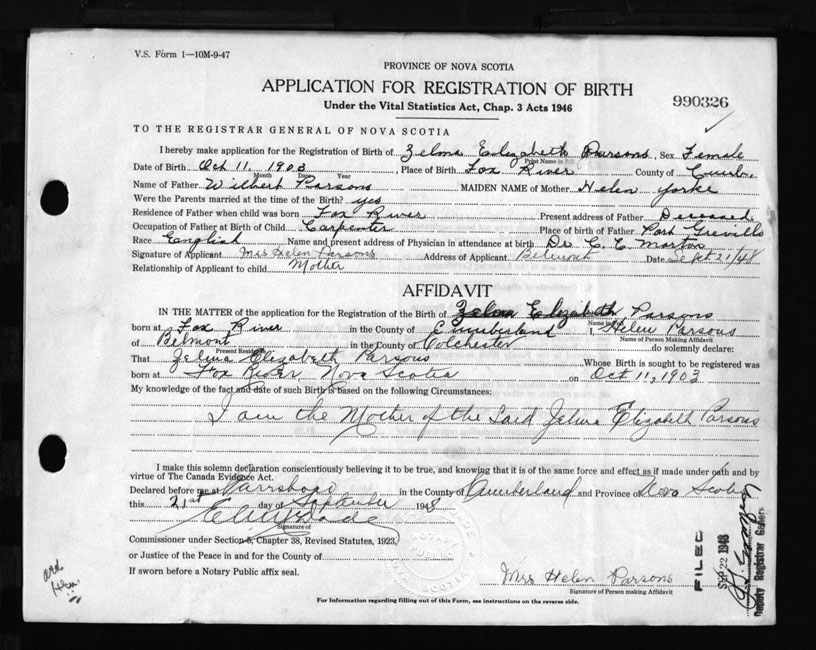 V.S. Form 1—10M-9-47
PROVINCE OF NOVA SCOTIA
APPLICATION FOR REGISTRATION OF BIRTH
Under the Vital Statistics Act, Chap. 3 Acts 1946
990326
TO THE REGISTRAR GENERAL OF NOVA SCOTIA
I hereby make application for the Registration of Birth of Zelma Elizabeth Parsons, Sex Female
Print Name in Full
Date of Birth Oct 11, 1903, Place of Birth Fox River County of Cumb.
Month Date Year
Name of Father Wilbert Parsons MAIDEN NAME of Mother Helen Yorke
Were the Parents married at time of the birth? yes
Residence of Father when child was born Fox River Present address of Father Deceased
Occupation of Father at Birth of Child Carpenter Place of birth of Father Port Greville
Race English Name and present address of Physician in attendance at birth Dr. C. C. Morton
Signature of Applicant Mrs Helen Parsons Address of Applicant Belmont Date Sept 21/48
Relationship of Applicant to child Mother
AFFIDAVIT
IN THE MATTER of the application for the Registration of the Birth of Zelma Elizabeth Parsons
born at Fox River in the County of Cumberland I, Helen Parsons
Name of Person Making Affidavit
of Belmont in the County of Colchester do solemnly declare:
Present Residence
That Zelma Elizabeth Parsons Whose Birth is sought to be registered was
born at Fox River, Nova Scotia on Oct 11, 1903
My knowledge of the fact and date of such Birth is based on the following Circumstances:
I am the Mother of the Said Zelma Elizabeth Parsons
I make this solemn declaration conscientiously believing it to be true, and knowing that it is of the same force and effect as if made under oath and by
virtue of The Canada Evidence Act.
Declared before me at Parrsboro in the County of Cumberland and Province of Nova Scotia
this 21st day of September 1948
Signature of
Commissioner under Section 5, Chapter 38, Revised Statutes, 1923,
or Justice of the Peace in and for the County of
If sworn before a Notary Public affix seal.
Mrs Helen Parsons
Signature of Person making Affidavit
For Information regarding filling out of this Form, see instructions on the reverse side.
FILED
SEP 22 1948
Deputy Registrar General
NOTARY PUBLIC
NOVA SCOTIA